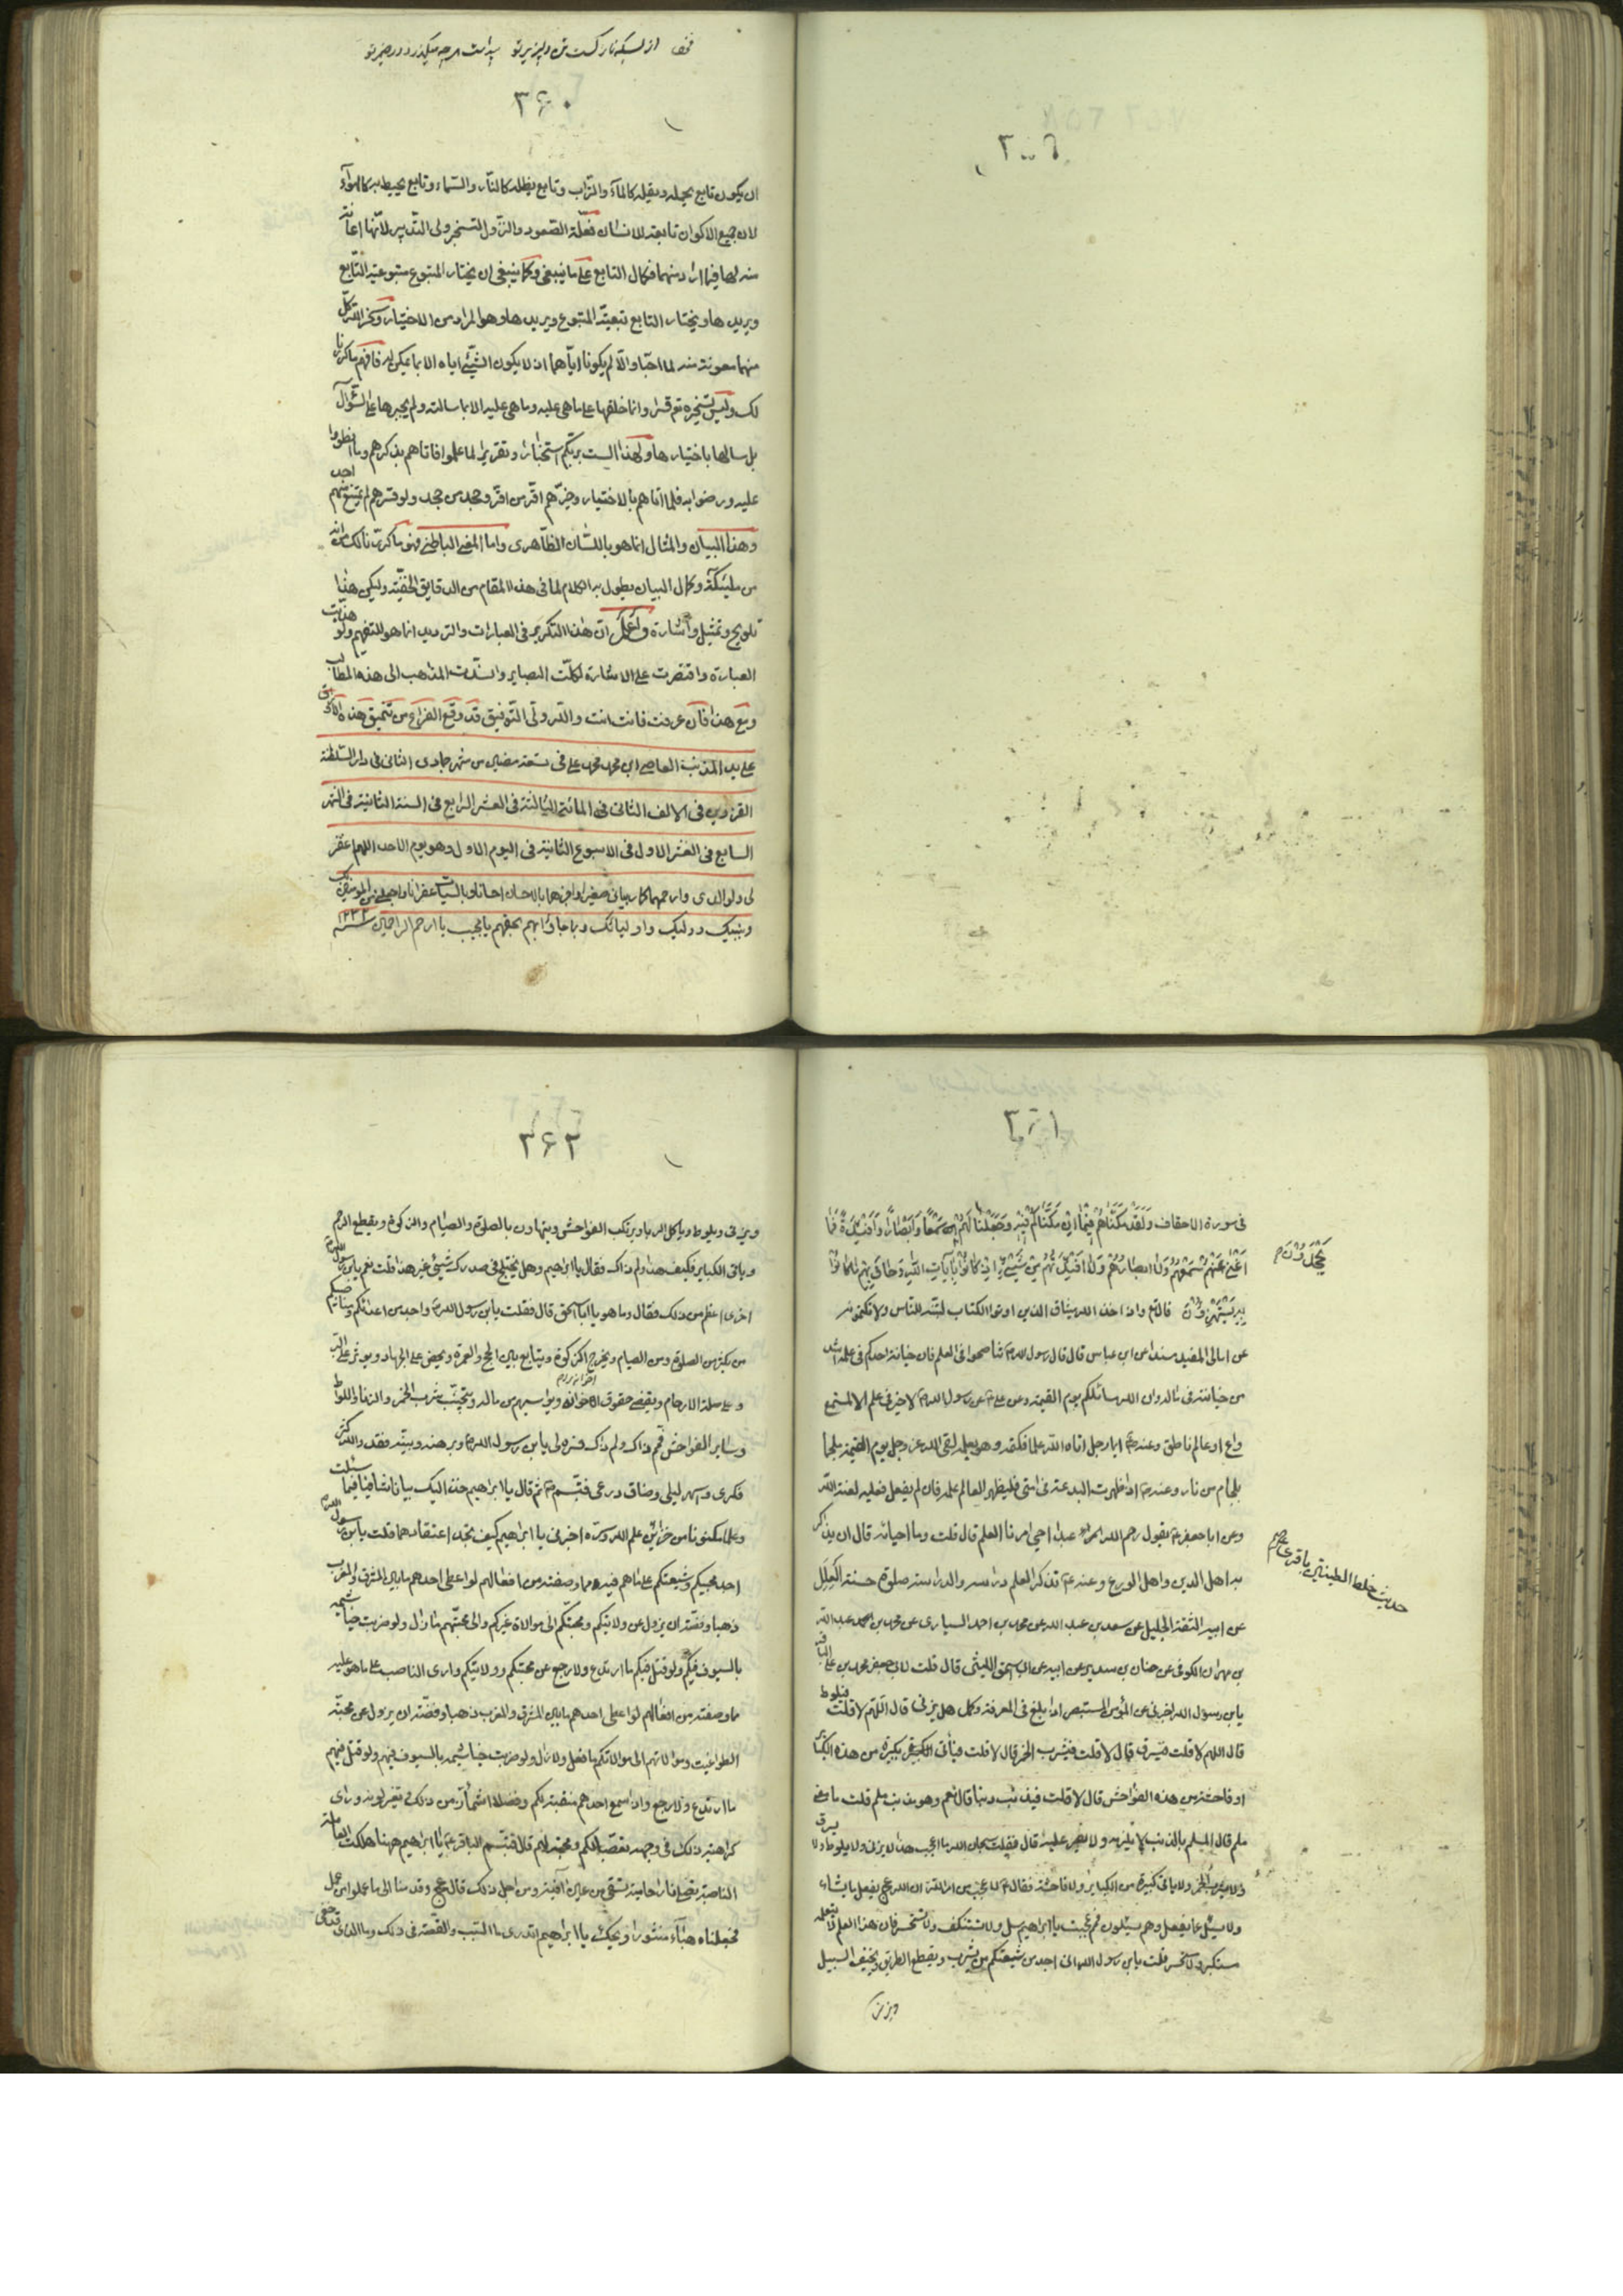 ۳۶۰
ان يكون تابع يحمله ويقله كالمآء والتراب وتابع يظله كالنار والسماء وتابع يحيط به كالهوآء
لان جميع الاكوان تابعة للانسان فعلّة الصعود والنزول التسخير ولى التدبير لانّها اعانة
منه لها فيما اراد منهما فكمال التابع على ما ينبغى وكما ينبغى ان يختار المتبوع متبوعية التابع
ويريدها ويختار التابع تبعية المتبوع ويريدها وهو المراد من الاختيار وسخر الله كل
منهما معونة منه لما احبّا والّا لم يكونا اياهما اذ لا يكون الشئ اياه الا بما يمكن له فافهم ما كررنا
لك وليس تسخيره تع قسرا وانما خلقها على ما هى عليه وما هى عليه الا بما سالته ولم يجبرها على السؤال
بل سالها باختيارها ولهذا الست بربكم استخبارا وتقريرا لما علموا فاتاهم بذكرهم وما انطووا
عليه ورضوا به فلما اتاهم بالاختيار وخيّرهم اقر من اقر وجحد من جحد ولو قسرهم لم يمتنع منهم احد
وهذا البيان والمثال انما هو باللسان الظاهرى واما المعنى الباطنى فهو ما كررنا لك
وكمال البيان يطول به الكلام لما فى هذا المقام من الدقايق الخفيّة وليكن هذا
تلويح وتمثيل واشارة واعلم انّ هذا التكرير فى العبارات والترديد انما هو للتفهيم ولو هذبت
العبارة واقتصرت على الاشارة لكلّت البصاير وانسدّت المذاهب الى هذه المطالب
ومع هذا فان عرفت فانت انت والله ولى التوفيق قد وقع الفراغ من تنميق هذه الاوراق
على يد المذنب العاصى ابن محمد محمد على فى تسعة مضين من شهر جمادى الثانى فى دار السلطنة
القزوين فى الالف الثانى فى المائة الثالثة فى العشر الرابع فى السنة الثانية فى الشهر
السابع فى العشر الاول فى الاسبوع الثانية فى اليوم الاول وهو يوم الاحد اللهم اغفر
لى ولوالدى وارحمهما كما ربيانى صغيرا واجزهما بالاحسان احسانا وبالسيات غفرانا
ونبيك ووليك واوليائك بحقهم يا مجيب يا ارحم الراحمين سنة ۱۲۳۲
۳۶۱
فى سورة الاحقاف وَلَقَدْ مَكَّنَّاهُمْ فِيمَا اِنْ مَكَّنَّاكُمْ فِيهِ وَجَعَلْنَا لَهُمْ سَمْعًا وَاَبْصَارًا وَاَفْئِدَةً فَمَا
اَغْنٰى عَنْهُمْ سَمْعُهُمْ وَلَا ابصَارُهُمْ وَلَا اَفْئِدَتُهُمْ مِنْ شَيْئٍ اِذْ كَانُوا يَجْحَدُونَ بِآيَاتِ اللّٰهِ وَحَاقَ بِهِمْ مَا كَانُوا
بِهِ يَسْتَهْزِؤُنَ قال تع واذ اخذ الله ميثاق الذين اوتوا الكتاب لتبيننه للناس ولا تكتمونه
عن امالى المفيد مسندا عن ابن عباس قال قال رسول الله ص تناصحوا فى العلم فان خيانة احدكم فى علمه اشد
من خيانته فى ماله وان الله سائلكم يوم القيمة وعن على ع عن رسول الله ص لا خير فى علم الا لمستمع
واع او عالم ناطق وعنه ع ايما رجل اتاه الله علما فكتمه وهو يعلمه لقى الله عز وجل يوم القيمة ملجما
بلجام من نار وعنه ع اذا ظهرت البدعة فى امتى فليظهر العالم علمه فان لم يفعل فعليه لعنة الله
وعن ابا جعفر ع يقول رحم الله عبدا احيى امرنا العلم قال قلت وما احيائه قال ان يذاكر
به اهل الدين واهل الورع وعنه ع تذكر العلم دراسه والدراسة صلوة حسنة العلل
عن ابيه الثقة الجليل عن سعد بن عبد الله عن محمد بن احمد السيارى عن محمد بن عبد الله
بن مهران الكوفى عن حنان بن سدير عن ابيه عن ابى اسحق الليثى قال قلت لابى جعفر محمد بن على الباقر
يابن رسول الله اخبرنى عن المؤمن المستبصر اذا بلغ فى المعرفة وكمل هل يزنى قال اللهم لا قلت فيلوط
قال اللهم لا قلت فيسرق قال لا قلت فيشرب الخمر قال لا قلت فيأتى بكبيرة من هذه الكباير
او فاحشة من هذه الفواحش قال لا قلت فيذنب ذنبا قال نعم وهو مذنب ملم قلت ما معنى
ملم قال الملم بالذنب لا يلزمه ولا يصر عليه قال فقلت سبحان الله ما اعجب هذا لا يزنى ولا يلوط ولا يسرق
ولا يشرب الخمر ولا ياتى كبيرة من الكباير ولا فاحشة فقال ع لا عجب من امر الله ان الله عج يفعل ما يشاء
ولا يسئل عما يفعل وهم يسئلون فمم عجبت يا ابراهيم سل ولا تستنكف ولا تستحسر فان هذا العلم لا يتعلمه
مستكبر ولا مستحسر قلت يابن رسول الله انى اجد من شيعتكم من يشرب ويقطع الطريق ويخيف السبيل
ويزنى
يَجْحَدُونَ
حديث خلط الطينتين باقرى ع
۳۶۲
ويزنى ويلوط وياكل الربا ويرتكب الفواحش ويتهاون بالصلوة والصيام والزكوة ويقطع الرحم
وياتى الكباير فكيف هذا ولم ذاك فقال يا ابراهيم وهل يختلج فى صدرك شيئ غير هذا قلت نعم يابن رسول الله
اخرى اعظم من ذلك فقال وما هو يا ابا اسحق قال فقلت يابن رسول الله واجد من اعدائكم ومناصبيكم
من يكثر من الصلوة ومن الصيام ويخرج الزكوة ويتابع بين الحج والعمرة ويحض على الجهاد ويوثر على البر
وعلى صلة الارحام ويقضى حقوق اخوانه ويواسيهم من ماله ويتجنّب شرب الخمر والزنا واللواط
وساير الفواحش فمم ذاك ولم ذاك فسره لى يابن رسول الله وبرهنه وبيّنه فقد والله كثر
فكرى واسهر ليلى وضاق ذرعى فتبسم ع ثم قال يا ابراهيم خذ اليك بيانا شافيا فيما سئلت
وعلما مكنونا من خزائن علم الله وسرّه اخبرنى يا ابراهيم كيف تجد اعتقادهما قلت يابن رسول الله
اجد محبيكم وشيعتكم على ما هم فيه مما وصفته من افعالهم لو اعطى احدهم ما بين المشرق والمغرب
ذهبا وفضّة ان يزول عن ولايتكم ومحبتكم الى موالاة غيركم والى محبتهم ما زال ولو ضربت خياشيمه
بالسيوف فيكم ولو قتل فيكم ما ارتدع ولا رجع عن محبتكم وولايتكم وارى الناصب على ما هو عليه
مما وصفته من افعالهم لو اعطى احدهم ما بين المشرق والمغرب ذهبا وفضّة ان يزول عن محبّة
الطواغيت وموالاتهم الى موالاتكم ما فعل ولا زال ولو ضربت خياشيمه بالسيوف فيهم ولو قتل فيهم
ما ارتدع ولا رجع واذا سمع احدهم منقبة لكم وفضلا اشمأز من ذلك وتغير لونه ورأى
كراهية ذلك فى وجهه بغضا لكم ومحبة لهم قال فتبسم الباقر ع يا ابراهيم ههنا هلكت العاملة
الناصبة تصلى نارا حامية تسقى من عين آنية ومن اجل ذلك قال عج وقدمنا الى ما عملوا من عمل
فجعلناه هبآء منثورا ويحك يا ابراهيم اتدرى ما السبب والقصّة فى ذلك وما الذى قد خفى